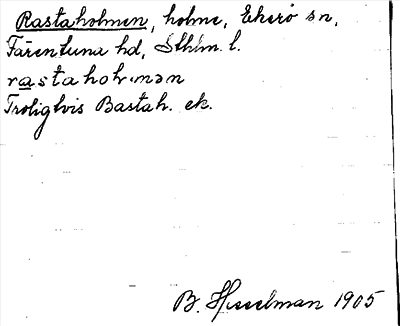 Rastaholmen, holme, Ekerö sn,
Färentuna hd, Sthlm. l.
rastahol·mən
Troligtvis Bastah. ek.
B. Hesselman 1905